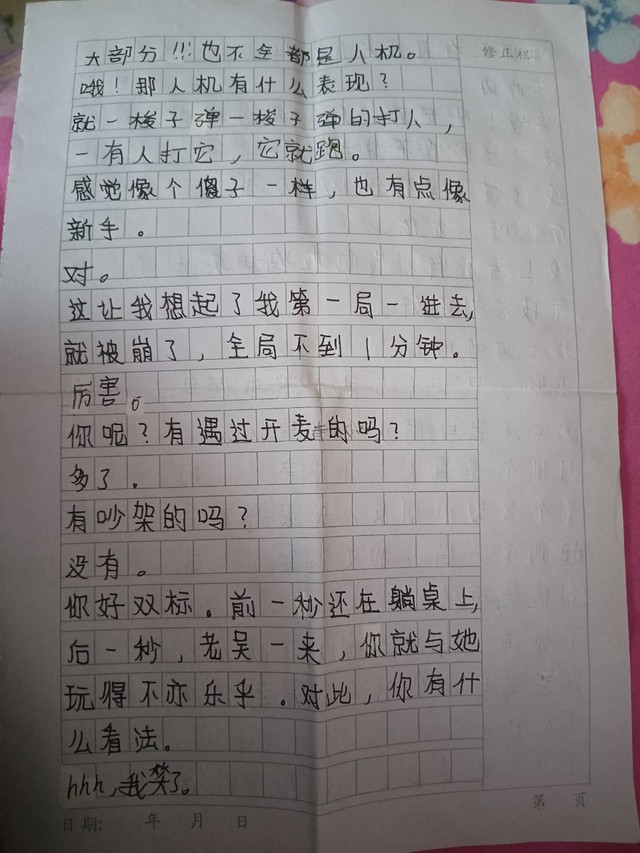 大部分!!!也不全都是人机。
修正栏
哦！那人机有什么表现？
就一梭子弹一梭子弹的打人，
一有人打它，它就跑。
感觉像个傻子一样，也有点像
新手。
对。
这让我想起了我第一局一进去,
就被崩了，全局不到1分钟。
厉害。
你呢？有遇过开麦的吗？
多了.
有吵架的吗？
没有。
你好双标.前一秒还在躺桌上,
后一秒，老吴一来，你就与她
玩得不亦乐乎.对此，你有什
么看法。
hhh,我笑了。
第 页
日期: 年 月 日